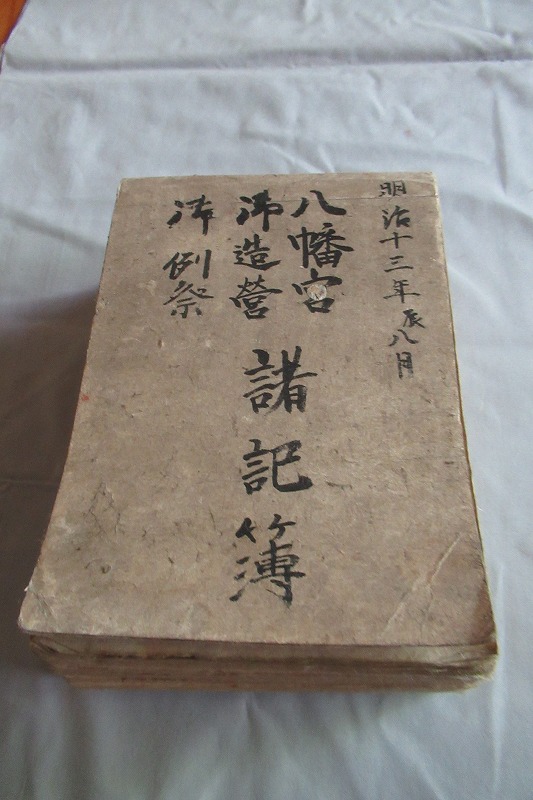 明治十三年辰八月
八幡宮
御造営
御例祭
諸記簿